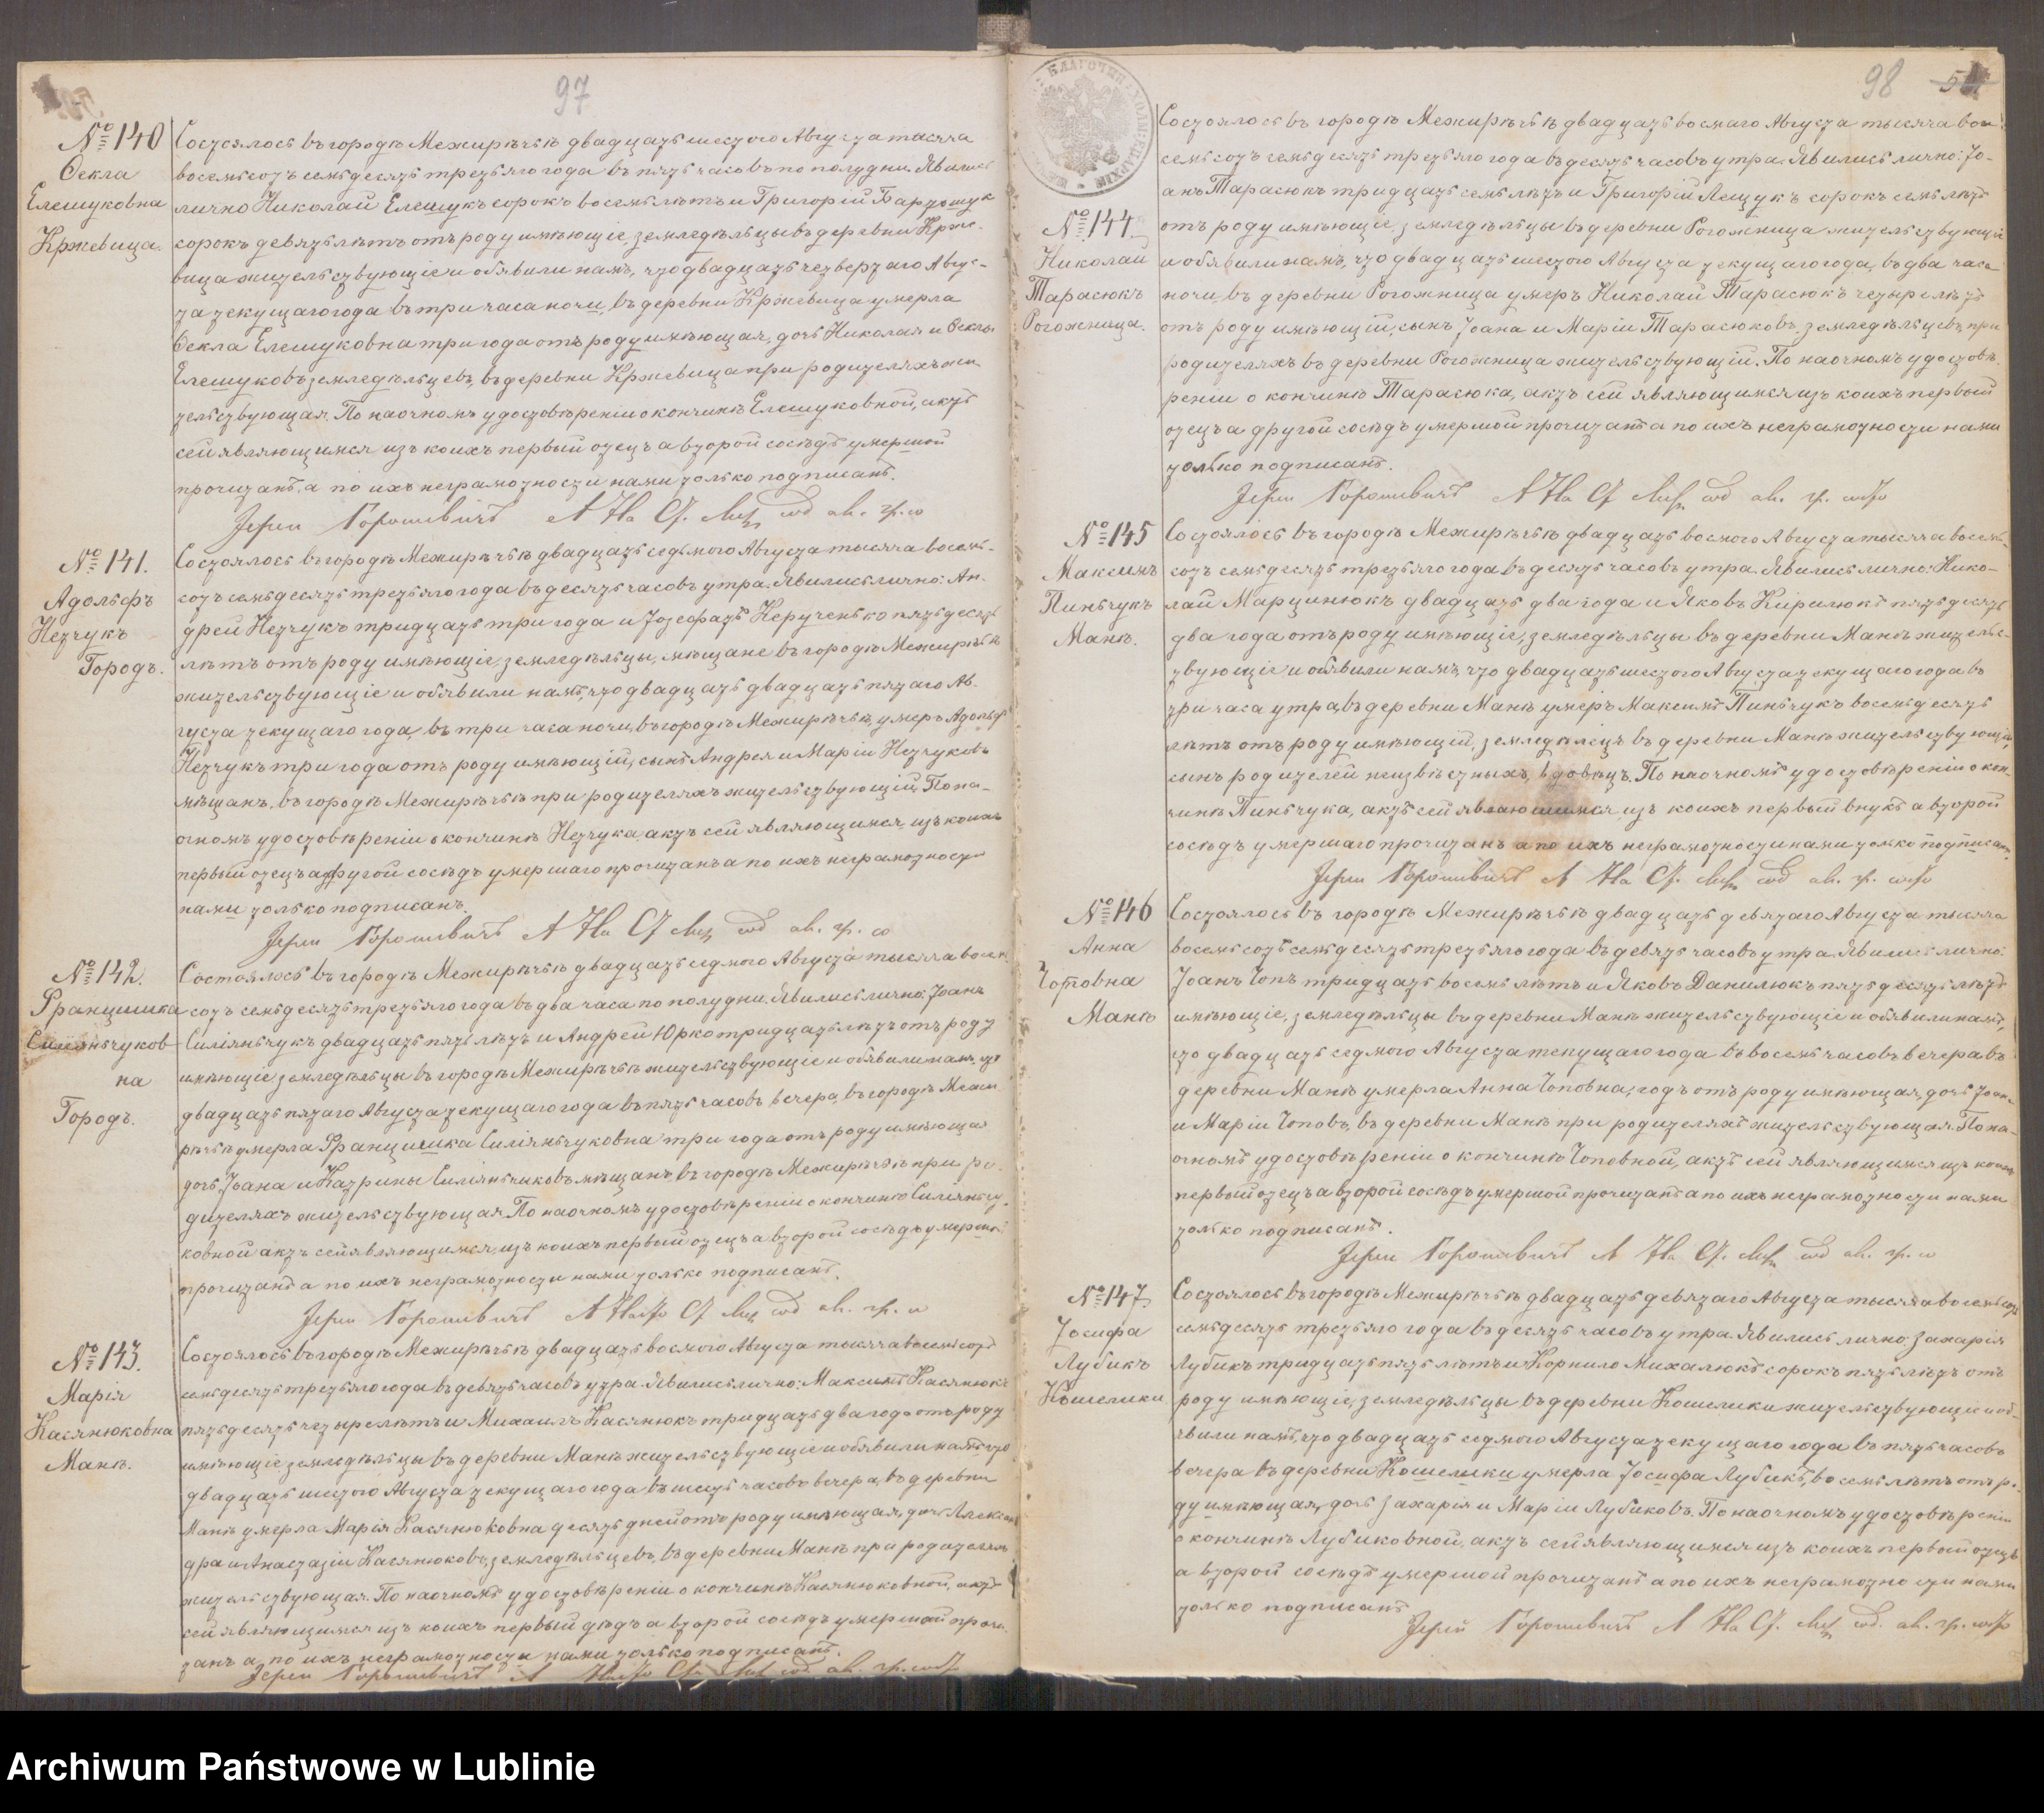 97
№ 140
Ѳекла
Елешуковна
Кржевица.
Состоялось въ городѣ Межирѣчьѣ двадцать шестого Августа тысяча
восемьсотъ семьдесятъ третьяго года въ пять часовъ по полудни. Явились
лично Николай Елешукъ сорокъ восемь лѣтъ и Григорій Бартошук
сорокъ девять лѣтъ отъ роду имѣющіе, земледѣльцы въ деревни Крже-
вица жительствующіе и обявили намъ, что двадцать четвертаго Авгус-
та текущаго года въ три часа ночи, въ деревни Кржевица умерла
Ѳекла Елешуковна три года отъ роду имѣющая, дочь Николая и Ѳеклы
Елешуковъ земледѣльцевъ, въ деревни Кржевица при родителяхъ жи
тельствующая. По наочномъ удостовѣреніи о кончинѣ Елешуковной, актъ
сей являющимся изъ коихъ первый отецъ а второй сосѣдъ умершой
прочитанъ, а по ихъ неграмотности нами только подписанъ.
№ 141.
Адольфъ
Нетчукъ
Городъ.
Состоялось въ городѣ Межирѣчьѣ двадцать седьмого Августа тысяча восемь-
сотъ семьдесятъ третьяго года въ десять часовъ утра. Явились лично: Ан-
дрей Нетчукъ тридцать три года и Іозефатъ Керученько пятьдесятъ
лѣтъ отъ роду имѣющіе, земледѣльцы, мѣщане въ городѣ Межирѣчьѣ
жительствующіе и обявили намъ, что двадцать двадцать пятаго Ав-
густа текущаго года, въ три часа ночи, въ городѣ Межирѣчьѣ, умеръ Адольфъ
Нетчукъ три года отъ роду имѣющій, сынъ Андрея и Маріи Нетчуковъ
мѣщанъ, въ городѣ Межирѣчьѣ при родителяхъ жительствующій. По на-
очномъ удостовѣреніи о кончинѣ Нетчука, актъ сей являющимся, изъ коихъ
первый отецъ а другой сосѣдъ умершаго прочитанъ а по ихъ неграмотности
нами только подписанъ.
№ 142.
Францишка
Силіяньчуков
на
Городъ.
Состоялось въ городѣ Межирѣчьѣ двадцать седмого Августа тысяча восем
сотъ семьдесятъ третьяго года въ два часа по полудни. Явились лично: Іоанъ
Силіяньчукъ двадцать пять лѣтъ и Андрей Юрко тридцать лѣтъ отъ роду
имѣющіе земледѣльцы въ городѣ Межирѣчьѣ жительствующіе и обявили намъ, что
двадцать пятаго Августа текущаго года въ пять часовъ вечера, въ городѣ Межи
рѣчьѣ умерла Францишка Силіяньчуковна три года отъ роду имѣющая
дочь Іоана и Катрины Силіяньчиковъ мѣщанъ въ городѣ Межирѣчьѣ при ро-
дителяхъ жительствующая. По наочномъ удостовѣреніи о кончинѣ Силіяньчу-
ковной актъ сей являющимся, изъ коихъ первый отецъ а второй сосѣдъ умершой
прочитанъ а по ихъ неграмотности нами только подписанъ.
№ 143.
Марія
Касянюковна
Манѣ.
Состоялось въ городѣ Межирѣчьѣ двадцать восмого Августа тысяча восемьсотъ
семьдесятъ третьяго года въ девять часовъ утра. Явились лично: Максимъ Касянюкъ
пятьдесятъ четыре лѣтъ и Михаилъ Касянюкъ тридцать два года отъ роду
имѣющіе, земледѣльцы въ деревни Манѣ жительствующіе и обявили намъ, что
двадцать шестого Августа текущаго года въ шесть часовъ вечера, въ деревни
Манѣ умерла Марія Касянюковна десять дней отъ роду имѣющая, дочь Алексан
дра и Анастазіи Касянюковъ, земледѣльцевъ, въ деревни Манѣ при родителяхъ
жительствующая. По наочномъ удостовѣреніи о кончинѣ Касянюковной, актъ
сей являющимся изъ коихъ первый дѣдъ а второй сосѣдъ умершой прочи-
танъ а по ихъ неграмотности нами только подписанъ.
98
№ 144
Николай
Тарасюкъ
Рогожница.
Состоялось въ городѣ Межирѣчьѣ двадцать восмаго Августа тысяча во-
семьсотъ семьдесятъ третьяго года въ десять часовъ утра. Явились лично: Іо-
анъ Тарасюкъ тридцать семь лѣтъ и Григорій Лещукъ сорокъ семь лѣтъ
отъ роду имѣющіе, земледѣльцы въ деревни Рогожница жительствующіе
и обявили намъ, что двадцать шестого Августа текущаго года, въ два часа
ночи, въ деревни Рогожница умеръ Николай Тарасюкъ четыре лѣтъ
отъ роду имѣющій, сынъ Іоана и Маріи Тарасюковъ, земледѣльцевъ, при
родителяхъ въ деревни Рогожница жительствующій. По наочномъ удостовѣ
реніи о кончинѣ Тарасюка, актъ сей являющимся изъ коихъ первый
отецъ а другой сосѣдъ умершой прочитанъ а по ихъ неграмотности нами
только подписанъ.
№ 145
Максимъ
Пиньчукъ
Манѣ.
Состоялось въ городѣ Межирѣчьѣ двадцать восмого Августа тысяча восемь-
сотъ семьдесятъ третьяго года въ десять часовъ утра. Явились лично: Нико-
лай Марцинюкъ двадцать два года и Яковъ Кирилюкъ пятьдесятъ
два года отъ роду имѣющіе, земледѣльцы въ деревни Манѣ жительс-
твующіе и обявили намъ, что двадцать шестого Августа текущаго года въ
три часа утра, въ деревни Манѣ умеръ Максимъ Пиньчукъ восемьдесятъ
лѣтъ отъ роду имѣющій, земледѣлецъ въ деревни Манѣ жительствующій,
сынъ родителей неизвѣстныхъ, вдовецъ. По наочномъ удостовѣреніи о кон-
чинѣ Пиньчука, актъ сей являющимся, изъ коихъ первый внукъ а второй
сосѣдъ умершаго прочитанъ а по ихъ неграмотности нами только подписанъ.
№ 146
Анна
Чоповна
Манѣ
Состоялось въ городѣ Межирѣчьѣ двадцать девятаго Августа тысяча
восемьсотъ семьдесятъ третьяго года въ девять часовъ утра. Явились лично:
Іоанъ Чопъ тридцать восемь лѣтъ и Яковъ Данилюкъ пятьдесятъ лѣтъ
имѣющіе, земледѣльцы въ деревни Манѣ жительствующіе и обявили намъ,
что двадцать седмого Августа текущаго года въ восемь часовъ вечера въ
деревни Манѣ умерла Анна Чоповна, годъ отъ роду имѣющая, дочь Іоана
и Маріи Чоповъ, въ деревни Манѣ при родителяхъ жительствующая. По на-
очномъ удостовѣреніи о кончинѣ Чоповной, актъ сей являющимся изъ коихъ
первый отецъ а второй сосѣдъ умершой прочитанъ а по ихъ неграмотности нами
только подписанъ.
№ 147
Іосифа
Лубикъ
Кошелики
Состоялось въ городѣ Межирѣчьѣ двадцать девятаго Августа тысяча восемьсотъ
семьдесятъ третьяго года въ десять часовъ утра. Явились лично: Захарія
Лубикъ тридцать пять лѣтъ и Корнило Михалюкъ сорокъ пять лѣтъ отъ
роду имѣющіе, земледѣльцы въ деревни Кошелики жительствующіе и об-
явили намъ, что двадцать седмого Августа текущаго года въ пять часовъ
вечера въ деревни Кошелики умерла Іосифа Лубикъ, восемь лѣтъ отъ ро-
ду имѣющая, дочь Захарія и Маріи Лубиковъ. По наочномъ удостовѣреніи
о кончинѣ Лубиковной, актъ сей являющимся изъ коихъ первый отецъ
а второй сосѣдъ умершой прочитанъ а по ихъ неграмотности нами
только подписанъ
Archiwum Państwowe w Lublinie